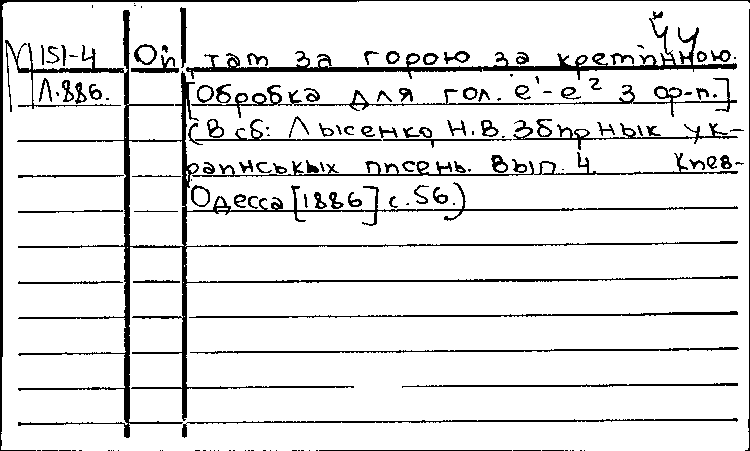 44
М 151-4 Ой, там за горою за креминною.
Л.886. [Обробка для гол. e¹-e² з ф-п.]
(В сб: Лысенко, Н.В. Збирнык ук-
раинськых писень. Вып. 4. Киев-
Одесса [1886] с. 56.)